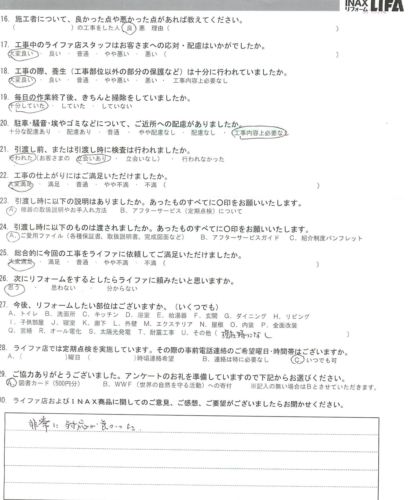 INAX
リフォーム LIFA
16. 施工者について、良かった点や悪かった点があれば教えてください。
( )の工事をした人 ( 良 ・ 悪 理由 ( )
17. 工事中のライファ店スタッフはお客さまへの応対・配慮はいかがでしたか。
大変良い ・ 良い ・ 普通 ・ やや悪い ・ 悪い ( )
18. 工事の際、養生(工事部位以外の部分の保護など)は十分に行われていましたか。
大変良い ・ 良い ・ 普通 ・ やや悪い ・ 悪い ・ 工事内容上必要なし
19. 毎日の作業終了後、きちんと掃除をしていましたか。
十分していた ・ していた ・ していない
20. 駐車・騒音・埃やゴミなどについて、ご近所への配慮がありましたか。
十分な配慮あり ・ 配慮あり ・ 普通 ・ やや配慮なし ・ 配慮なし ・ 工事内容上必要なし
21. 引渡し前、または引渡し時に検査は行われましたか。
行われた (お客さまの 立会いあり ・ 立会いなし) ・ 行われなかった
22. 工事の仕上がりにはご満足いただけましたか。
大変満足 ・ 満足 ・ 普通 ・ やや不満 ・ 不満 ( )
23. 引渡し時に以下の説明はありましたか。あったものすべてに○印をお願いいたします。
A. 機器の取扱説明やお手入れ方法 B. アフターサービス(定期点検)について
24. 引渡し時に以下のものは渡されましたか。あったものすべてに○印をお願いいたします。
A. ご愛用ファイル(各種保証書、取扱説明書、完成図面など) B. アフターサービスガイド C. 紹介制度パンフレット
25. 総合的に今回の工事をライファに依頼してご満足いただけましたか。
大変満足 ・ 満足 ・ 普通 ・ やや不満 ・ 不満 ( )
26. 次にリフォームをするとしたらライファに頼みたいと思いますか。
思う ・ 思わない ・ 分からない
27. 今後、リフォームしたい部位はございますか。(いくつでも)
A. トイレ B. 洗面所 C. キッチン D. 浴室 E. 給湯器 F. 玄関 G. ダイニング H. リビング
I. 子供部屋 J. 寝室 K. 廊下 L. 外壁 M. エクステリア N. 屋根 O. 内装 P. 全面改装
Q. 窓 R. オール電化 S. 太陽光発電 T. 耐震工事 U. その他 (
28. ライファ店では定期点検を実施しています。その際の事前電話連絡のご希望曜日・時間帯はございますか。
A. ( )曜日 ( )時頃連絡希望 B. 連絡は特に必要なし C. いつでも可
29. ご協力ありがとうございました。アンケートのお礼を準備していますので下記からお選びください。
A. 図書カード(500円分) B. WWF(世界の自然を守る活動)への寄付 ※記入の無い場合はBとさせていただきます。
30. ライファ店およびINAX商品に関してのご意見、ご感想、ご要望がございましたらお聞かせください。
非常に対応が良かった。